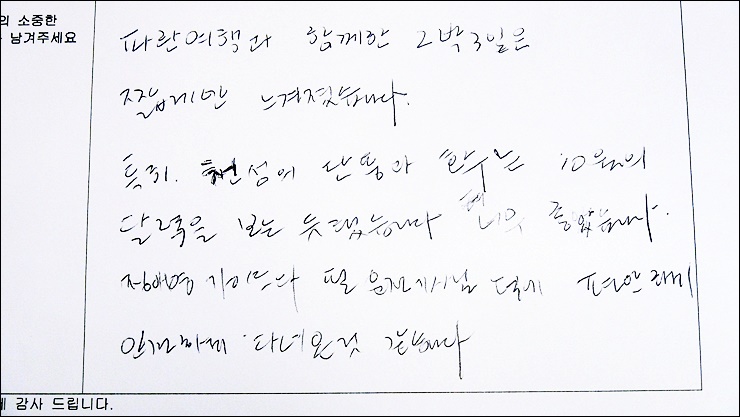 의 소중한
남겨주세요
파란여행과 함께한 2박3일은
짧게만 느껴졌습니다.
특히. 천성에 단풍과 호수는 10월의
달력을 보는 듯했습니다 너무 좋았습니다.
가이드와 및 운전기사님 덕에 편안하게
안전하게 다녀온것 같습니다
감사 드립니다.